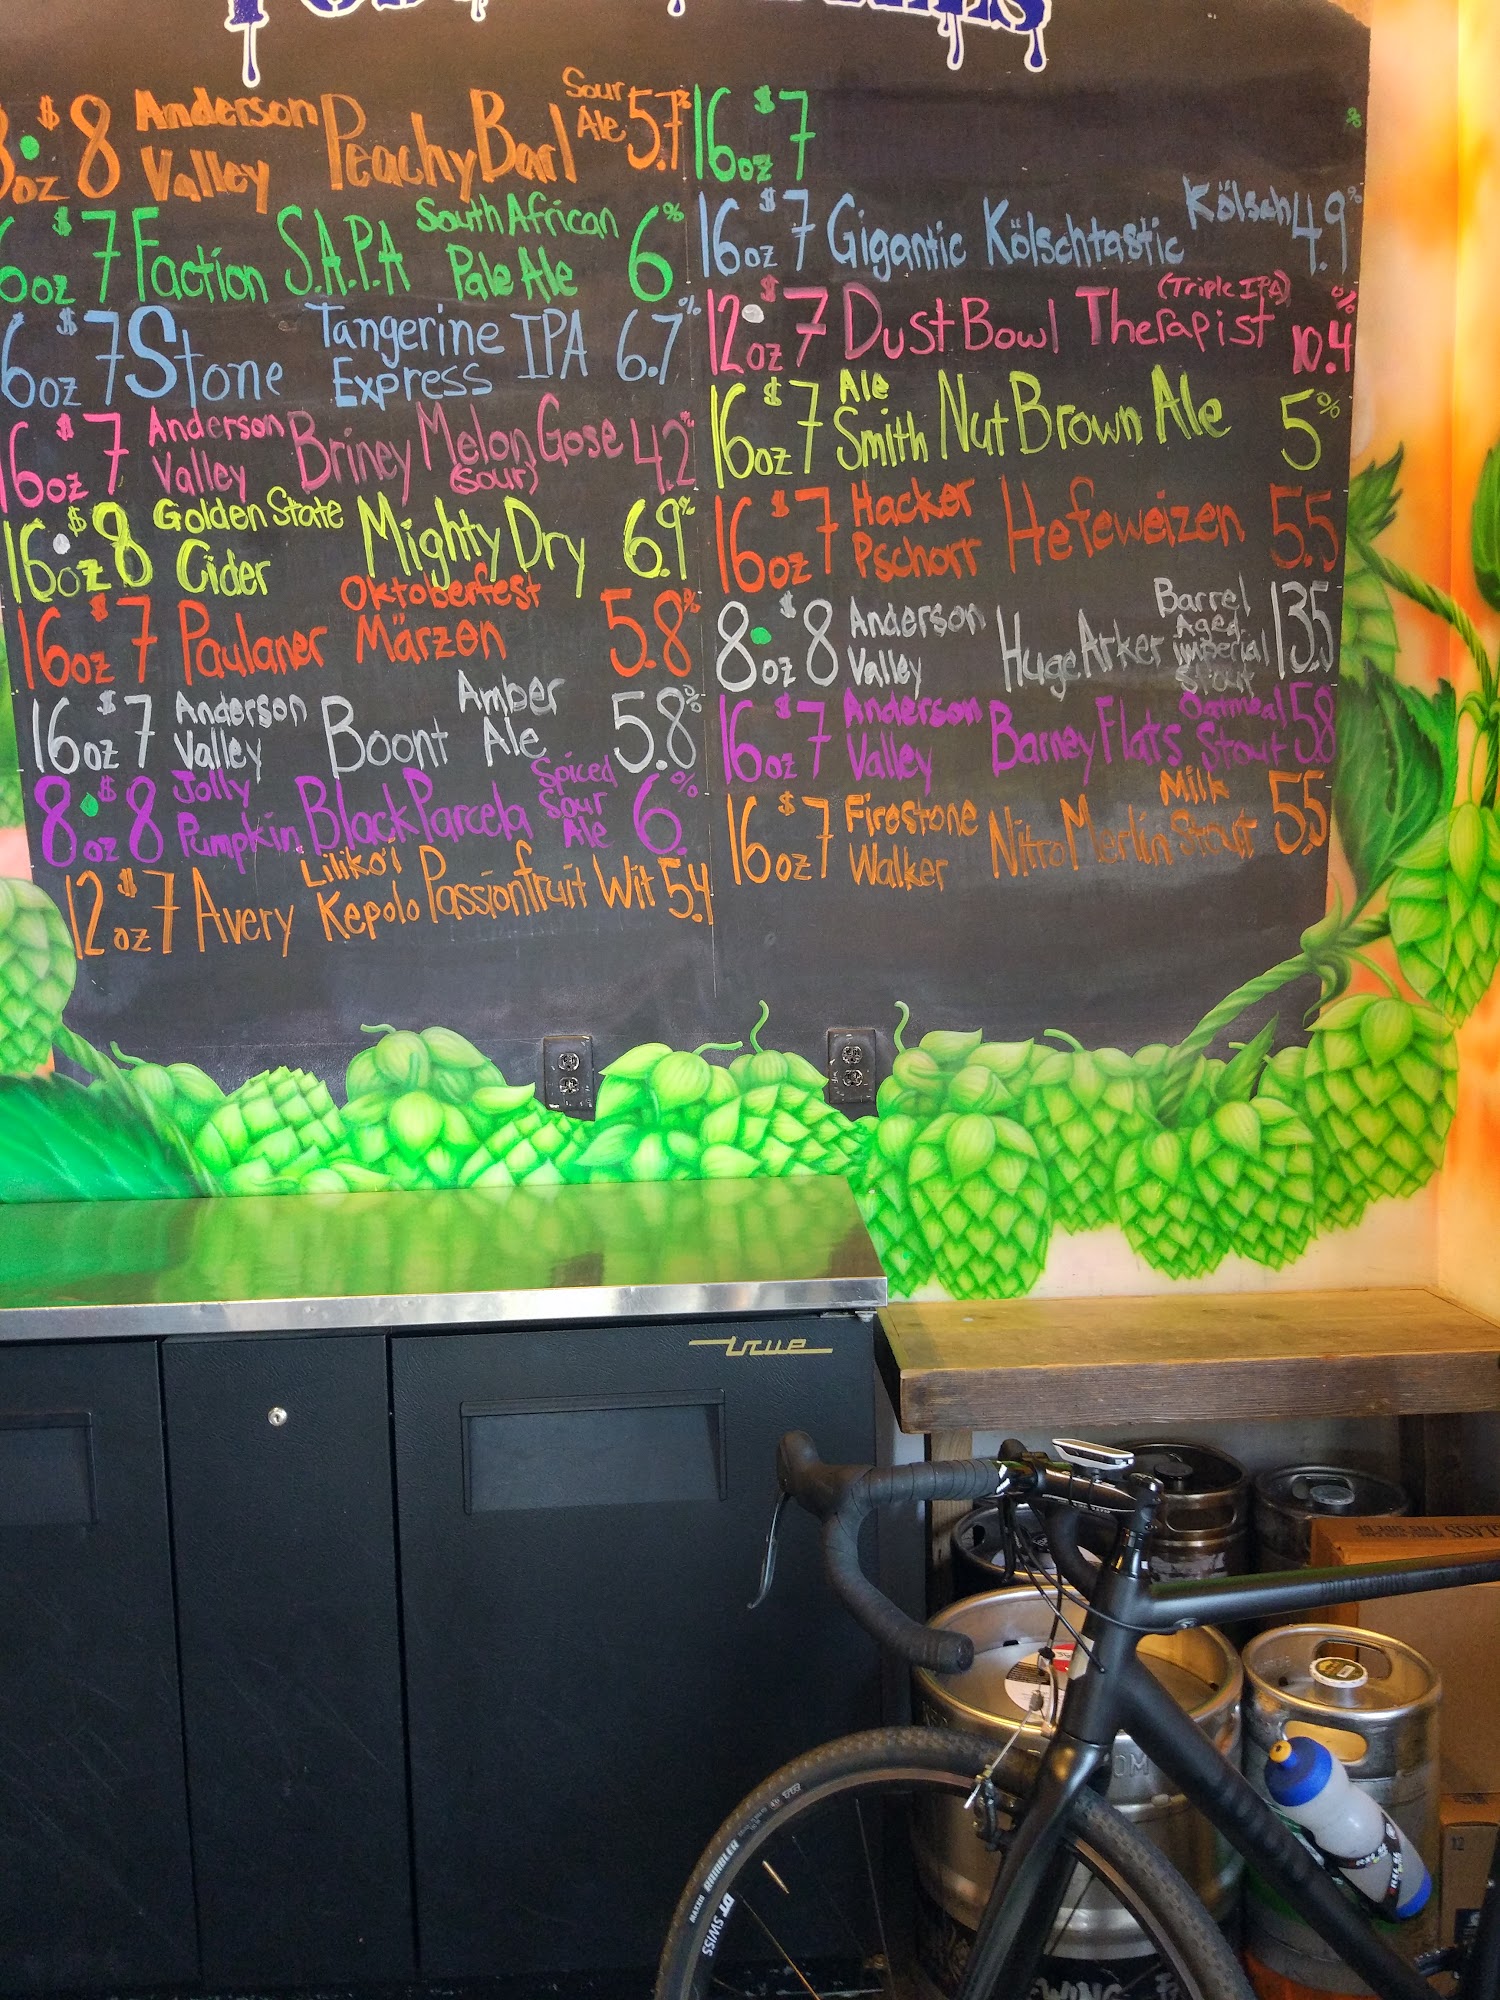 8oz $8 Anderson Valley Peachy Barl Sour Ale 5.7%
6oz $7 Faction S.A.P.A South African Pale Ale 6%
6oz $7 Stone Tangerine Express IPA 6.7%
16oz $7 Anderson Valley Briney Melon Gose (sour) 4.2%
16oz $8 Golden State Cider Mighty Dry 6.9%
16oz $7 Paulaner Oktoberfest Märzen 5.8%
16oz $7 Anderson Valley Boont Amber Ale 5.8%
8oz $8 Jolly Pumpkin Black Parcela Spiced Sour Ale 6%
12oz $7 Avery Liliko'i Kepolo Passionfruit Wit 5.4
16oz $7 %
16oz $7 Gigantic Kölschtastic Kölsch 4.9%
12oz $7 Dust Bowl Therapist (Triple IPA) 10.4%
16oz $7 Ale Smith Nut Brown Ale 5%
16oz $7 Hacker Pschorr Hefeweizen 5.5
8oz $8 Anderson Valley Huge Arker Barrel Aged imperial Stout 13.5
16oz $7 Anderson Valley Barney Flats Oatmeal Stout 5.8
16oz $7 Firestone Walker Nitro Merlin Milk Stout 5.5
true
GLASS
MAXXIS RAMBLER
DT SWISS
12